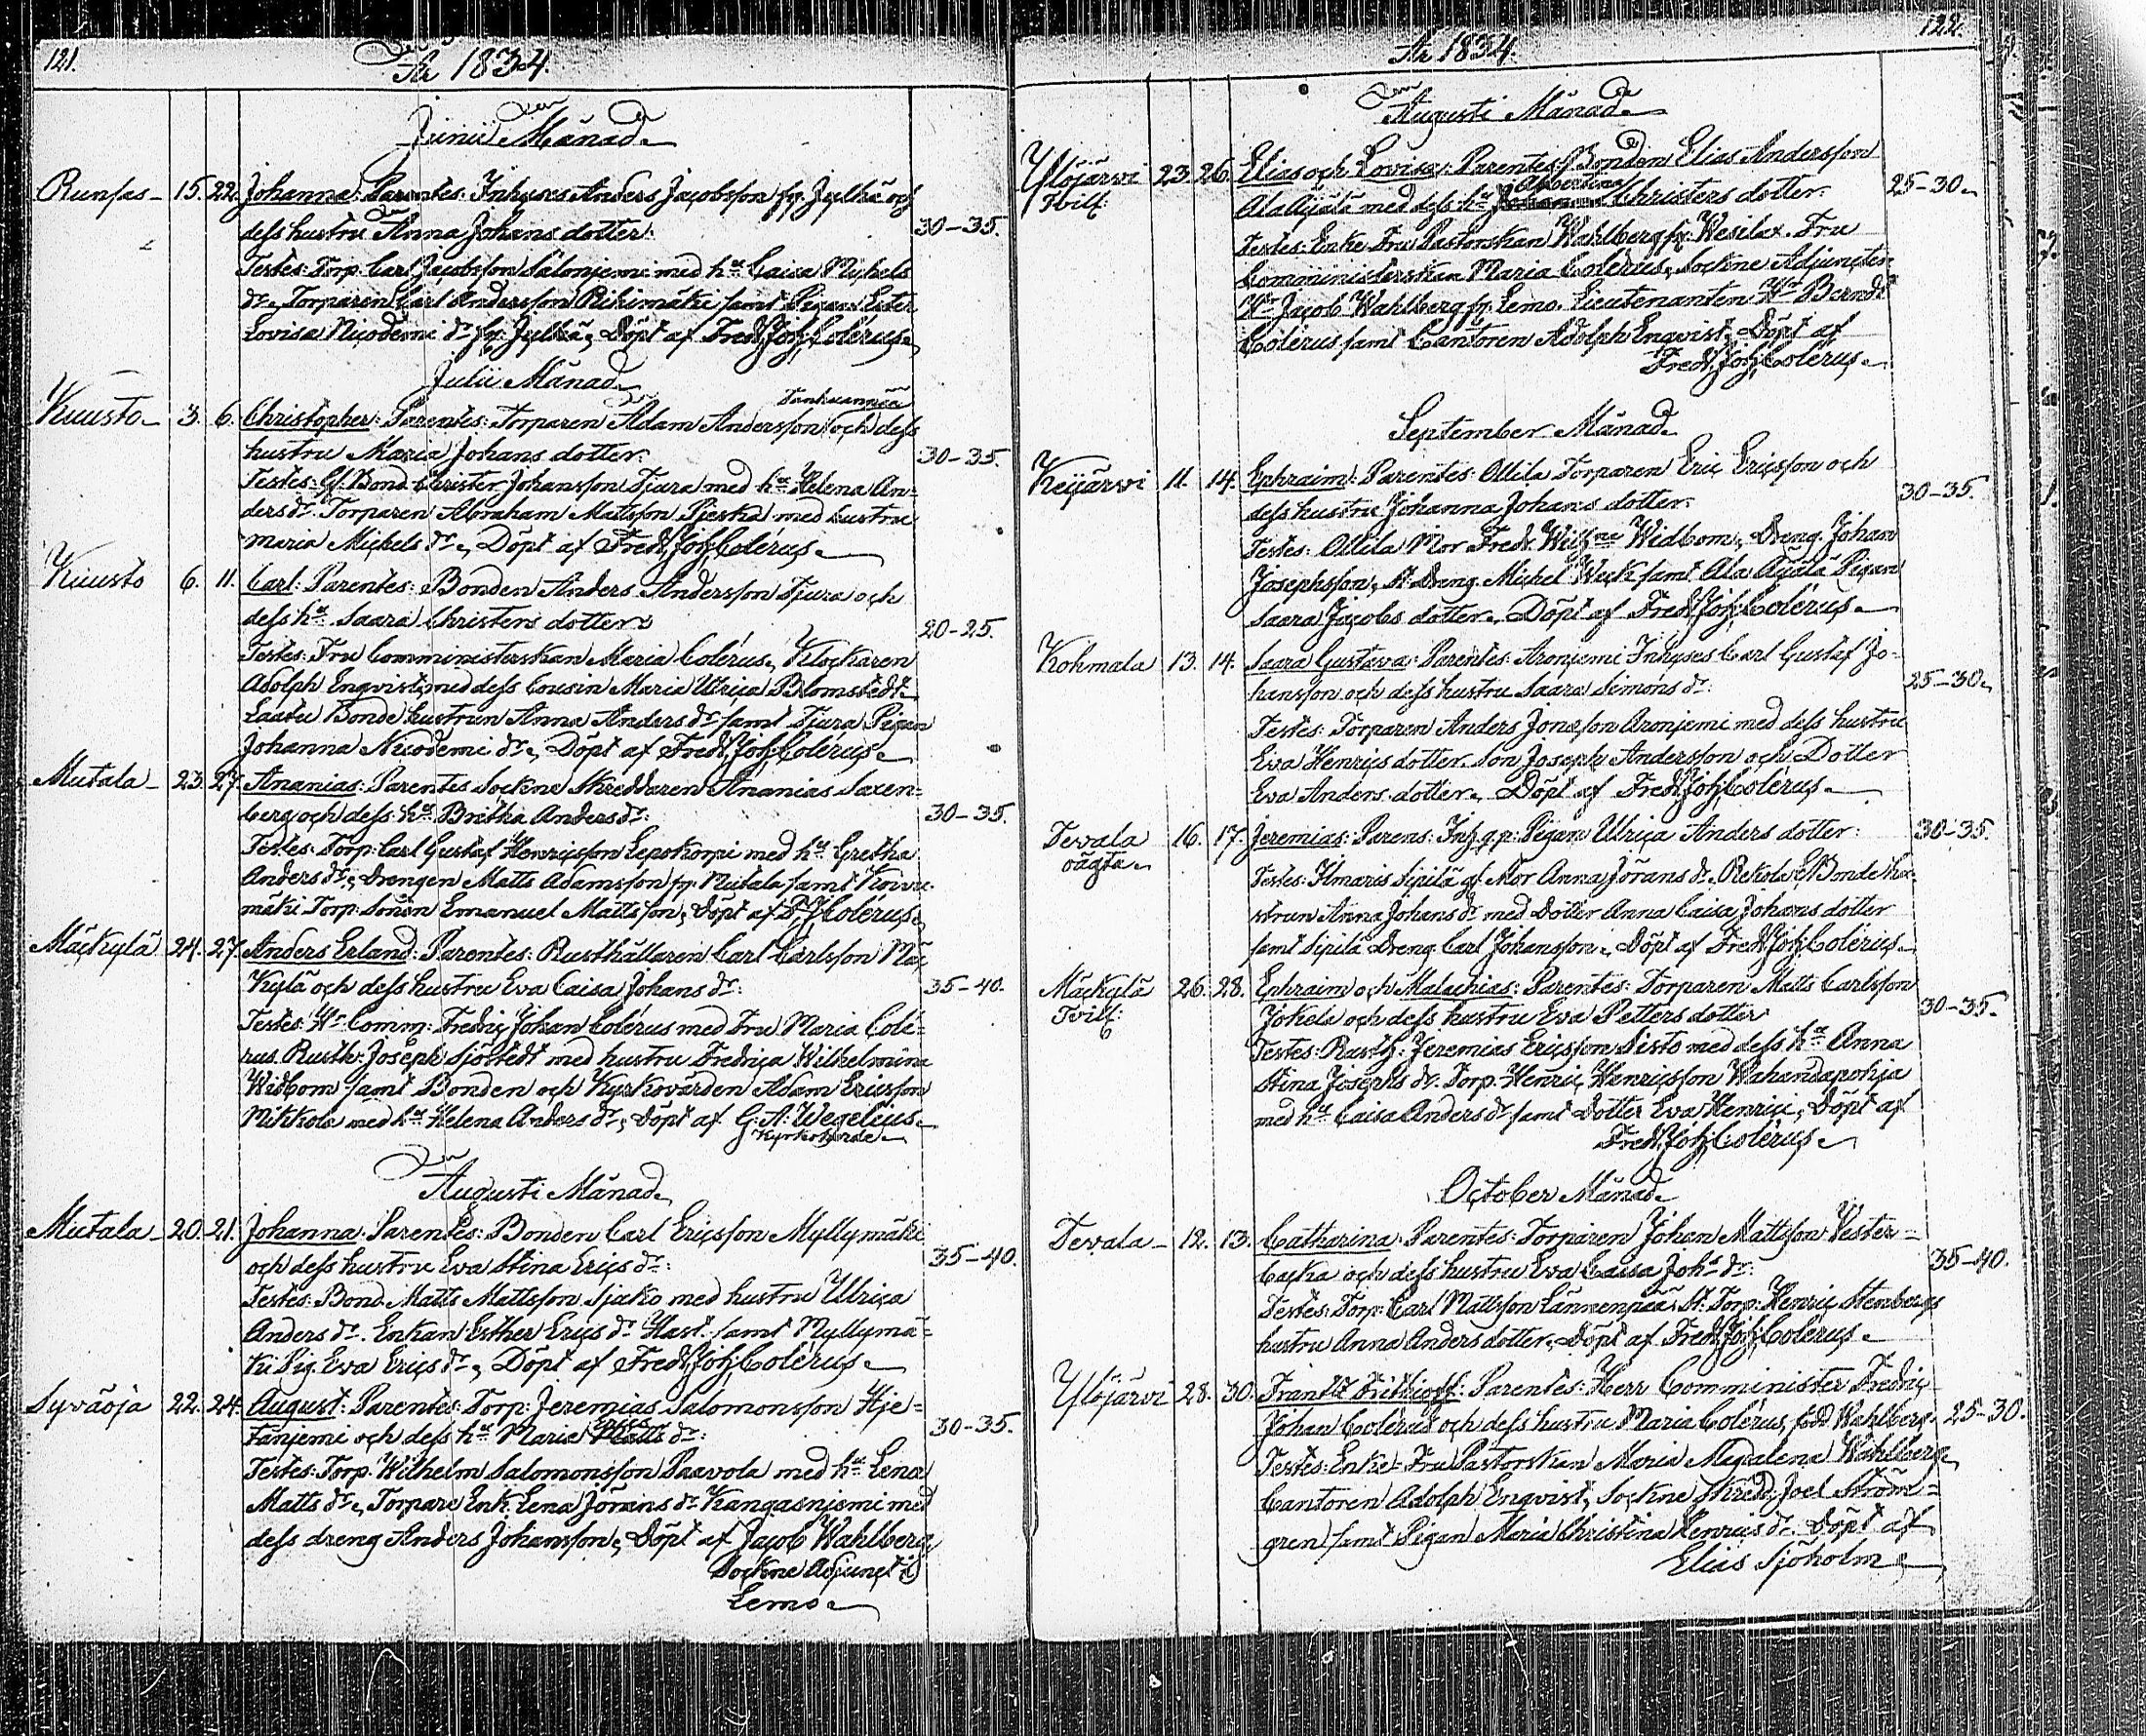 121.
År 1834.
Junii Månad
Runsas 15. 22. Johanna: Parentes: Inhyses Anders Jacobsson fr. Jylhä och
dess hustru Anna Johans dotter. 30-35.
Testes: Torp. Carl Jacobsson Salonjemi med h:u Caisa Michels
dr. Torparen Carl Andersson Rihimäki samt Pigan Ester
Lovisa Nicodemi dr fr. Jylhä, Döpt af Fredr. Joh. Colérus.
Julii Månad
Kuusto 3. 6. Christopher: Parentes: Torparen Adam Andersson och dess
hustru Maria Johans dotter. 30-35.
Testes: Bond. Christer Johansson Tjura med h:u Helena An-
ders dr. Torparen Abraham Mattsson med hustru
Maria Michels dr, Döpt af Fredr. Joh. Colérus.
Kuusto 6. 11. Carl: Parentes: Bonden Anders Andersson Tjura och
dess h:u Saara Christers dotter. 20-25.
Testes: Fru Comministerskan Maria Colérus, Klockaren
Adolph Enqvist, med dess Cousin Maria Ulrica Blomstedt.
Laatu Bonde hustrun Anna Anders dr samt Tjura Pigan
Johanna Nicodemi dr, Döpt af Fredr. Joh. Colérus.
Mutala 23. 27. Ananias: Parentes Sockne Skreddaren Ananias Saxen-
berg och dess h:u Britha Anders dr. 30-35.
Testes: Torp: Carl Gustaf Henricsson Lepokorpi med h:u Gretha
Anders dr, Drengen Matts Adamsson fr. Mutala samt
mäki Torp. Sonen Emanuel Mattsson, Döpt af F. J. Colérus.
Mäckylä 24. 27. Anders Erland: Parentes: Rusthållaren Carl Carlsson Mäc
Kylä och dess hustru Eva Caisa Johans dr. 35-40.
Testes: Hr Comm: Fredric Johan Colérus med Fru Maria Colé-
rus. Rusth: Joseph Sjöstedt med hustru Fredrica Wilhelmina
Widbom samt Bonden och Kyrkovärden Adam Ericsson
Mikkola med h:u Helena Anders dr, Döpt af G. A. Wegelius.
Kyrkoherde
Augusti Månad
Mutala 20. 21. Johanna: Parentes: Bonden Carl Ericsson Myllymäki
och dess hustru Eva Stina Erics dr. 35-40.
Testes: Bond. Matts Mattsson Sjako med hustru Ulrica
Anders dr. Enkan Esther Erics dr Hast. samt Myllymä-
ki Pig. Eva Erics dr, Döpt af Fredr. Joh. Colérus.
Syväoja 22. 24. August: Parentes: Torp: Jeremias Salomonsson Hje-
tanjemi och dess h:u Maria Erics dr. 30-35.
Testes: Torp. Wilhelm Salomonsson Paavola med h:u Lena
Matts dr, Torpare Enk. Lena Jörans dr Kangasnjemi med
dess dreng Anders Johansson, Döpt af Jacob Wahlberg
Sockne Adjunct i
Lemo.
122.
År 1834.
Augusti Månad
Ylöjärvi 23. 26. Elias och Lovisa: Parentes: Bonden Elias Andersson
Tvill: Ala Äijälä med dess h:u Albertina Christers dotter. 25-30.
Testes: Enke Fru Pastorskan Wahlberg fr. Wesilax. Fru
Comministerskan Maria Colérus, Sockne Adjuncten
Hr Jacob Wahlberg fr. Lemo. Lieutenanten Hr Berndt
Colérus samt Cantoren Adolph Enqvist, Döpt af
Fredr. Joh. Colérus.
September Månad
Keijärvi 11. 14. Ephraim: Parentes: Ollila Torparen Eric Ericsson och
dess hustru Johanna Johans dotter. 30-35.
Testes: Ollila Mor Fredr. Wilh:na Widbom, Dreng. Johan
Josephsson, St. Dreng. Michel Weck samt Ala Äijälä Pigan
Saara Jacobs dotter. Döpt af Fredr. Joh. Colérus.
Kohmala 13. 14. Saara Gustava: Parentes: Aronjemi Inhyses Carl Gustaf Jo-
hansson och dess hustru Saara Simons dr. 25-30.
Testes: Torparen Anders Jonasson Aronjemi med dess hustru
Eva Henrics dotter. Son Joseph Andersson och Dotter
Eva Anders dotter. Döpt af Fredr. Joh. Colérus.
Tevala 16. 17. Jeremias: Parens: Inh. q.p. Pigan Ulrica Anders dotter. 30-35.
oägta Testes: Ilmaris Sipilä gl. Mor Anna Jörans dr. Rekola Bonde hu-
strun Anna Johans dr med Dotter Anna Caisa Johans dotter
samt Sipilä Dreng Carl Johansson. Döpt af Fredr. Joh. Colérus.
Mäckylä 26. 28. Ephraim och Malachias: Parentes: Torparen Matts Carlsson
Tvill: Jokela och dess hustru Eva Petters dotter 30-35.
Testes: Rusth: Jeremias Ericsson Sisto med dess h:u Anna
Stina Josephs dr. Torp. Henric Henricsson Wahandapohja
med h:u Caisa Anders dr samt Dotter Eva Henrici, Döpt af
Fredr. Joh. Colérus.
October Månad
Tevala 12. 13. Catharina: Parentes: Torparen Johan Mattsson Vester-
backa och dess hustru Eva Caisa Joh:s dr. 35-40.
Testes: Torp: Carl Mattsson Lännenpää, St. Torp: Henric Stenbergs
hustru Anna Anders dotter, Döpt af Fredr. Joh. Colérus.
Ylöjärvi 28. 30. Frantz Frithioff: Parentes: Herr Comminister Fredric
Johan Colérus och dess hustru Maria Colérus, född Wahlberg. 25-30.
Testes: Enke Fru Pastorskan Maria Magdalena Wahlberg,
Cantoren Adolph Enqvist, Sockne Skredd. Joel Ström-
gren samt Pigan Maria Christina Henrics dr. Döpt af
Elias Sjöholm